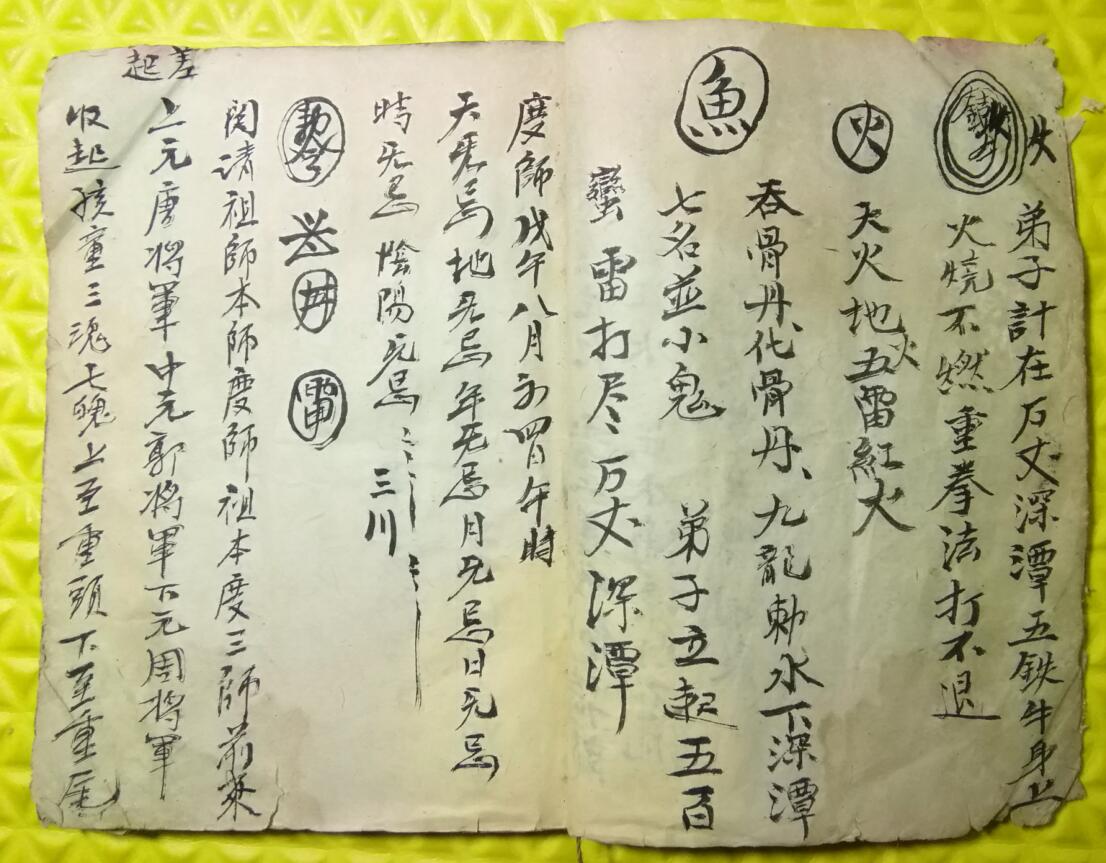 弟子計在万丈深潭五铁牛身上
火燒不燃重拳法打不退
火
天火地火五雷紅火
吞骨丹化骨丹、九龍勅水下深潭
魚
七名並小鬼 弟子立起五百
蠻雷打尽万丈深潭
度師戊午八月初四日午時
天无忌地无忌年无忌月无忌日无忌
時无忌陰陽无忌
三川
勅令 井 雷
関清祖師本師度師祖本度三師前來
上元唐将軍中元郭将軍下元周将軍
差起
收起孩童三魂七魄上至重頭下至重尾